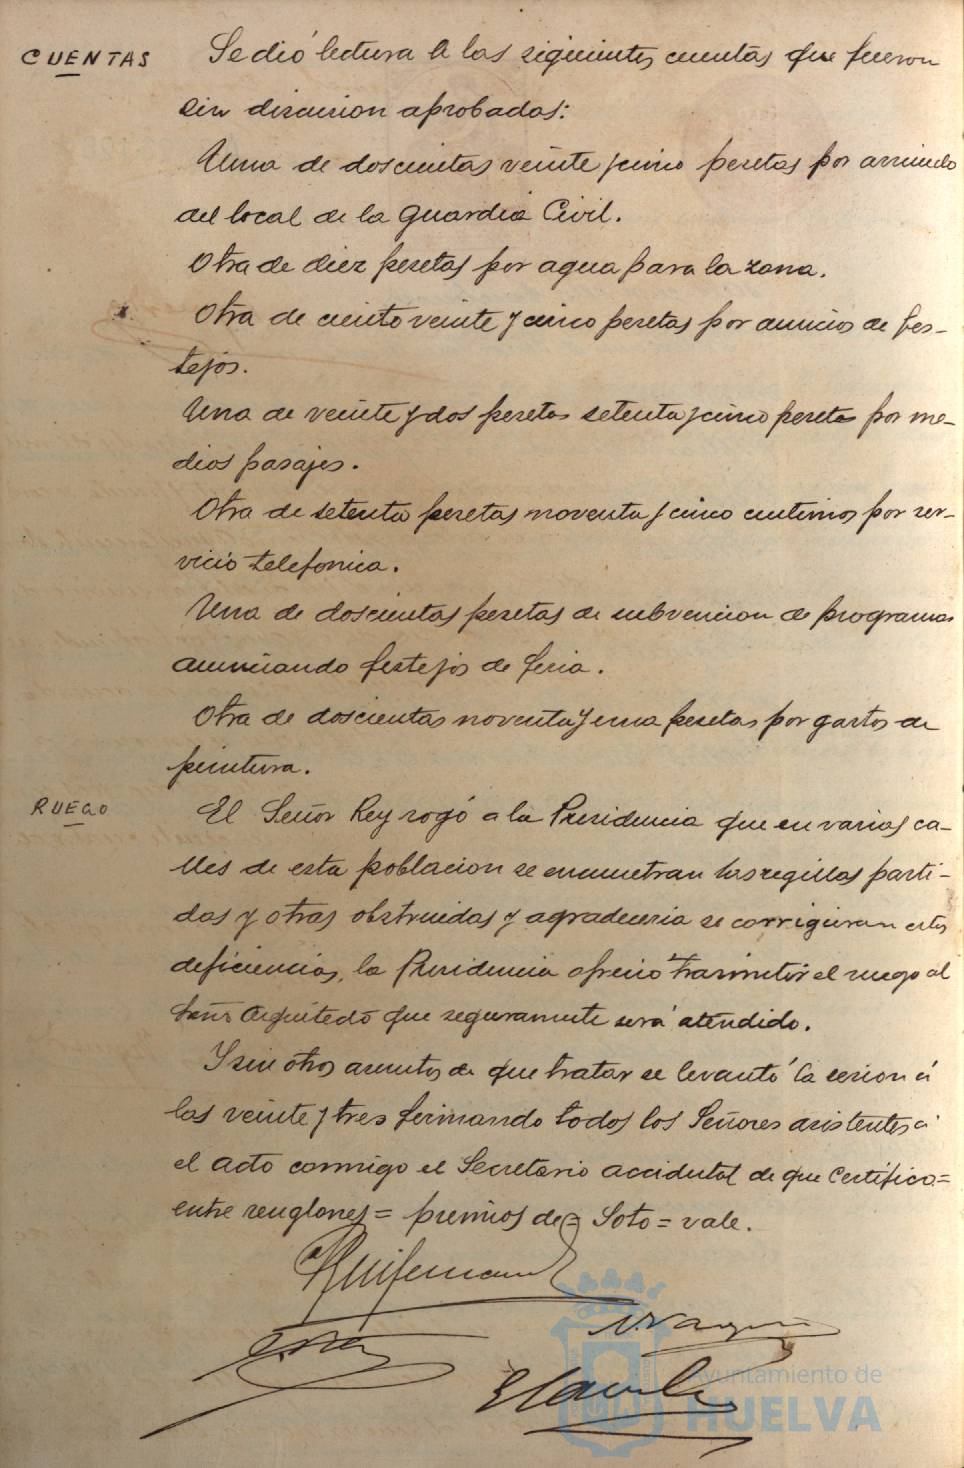 CUENTAS
Se dió lectura a las siguientes cuentas que fueron
sin discusion aprobadas:
Una de doscientas veinte y cinco pesetas por arriendo
del local de la Guardia Civil.
Otra de diez pesetas por agua para la zona.
Otra de ciento veinte y cinco pesetas por anuncios de fes-
tejos.
Una de veinte y dos pesetas setenta y cinco pesetas por me-
dios pasajes.
Otra de setenta pesetas noventa y cinco centimos por ser-
vicio telefonica.
Una de doscientas pesetas de subvencion de programas
anunciando festejos de feria.
Otra de doscientas noventa y una pesetas por gastos de
pintura.
RUEGO
El Señor Rey rogó a la Presidencia que en varias ca-
lles de esta poblacion se encuentran las regillas parti-
das y otras obstruidas y agradeceria se corrigieran estas
deficiencias, la Presidencia ofrecio trasmitir el ruego al
Señor Arquitecto que seguramente será atendido.
Y sin otros asuntos de que tratar se levantó la sesion á
las veinte y tres firmando todos los Señores asistentes á
el acto conmigo el Secretario accidental de que Certifico=
entre renglones = premios de = Soto = vale.
Ayuntamiento de
HUELVA